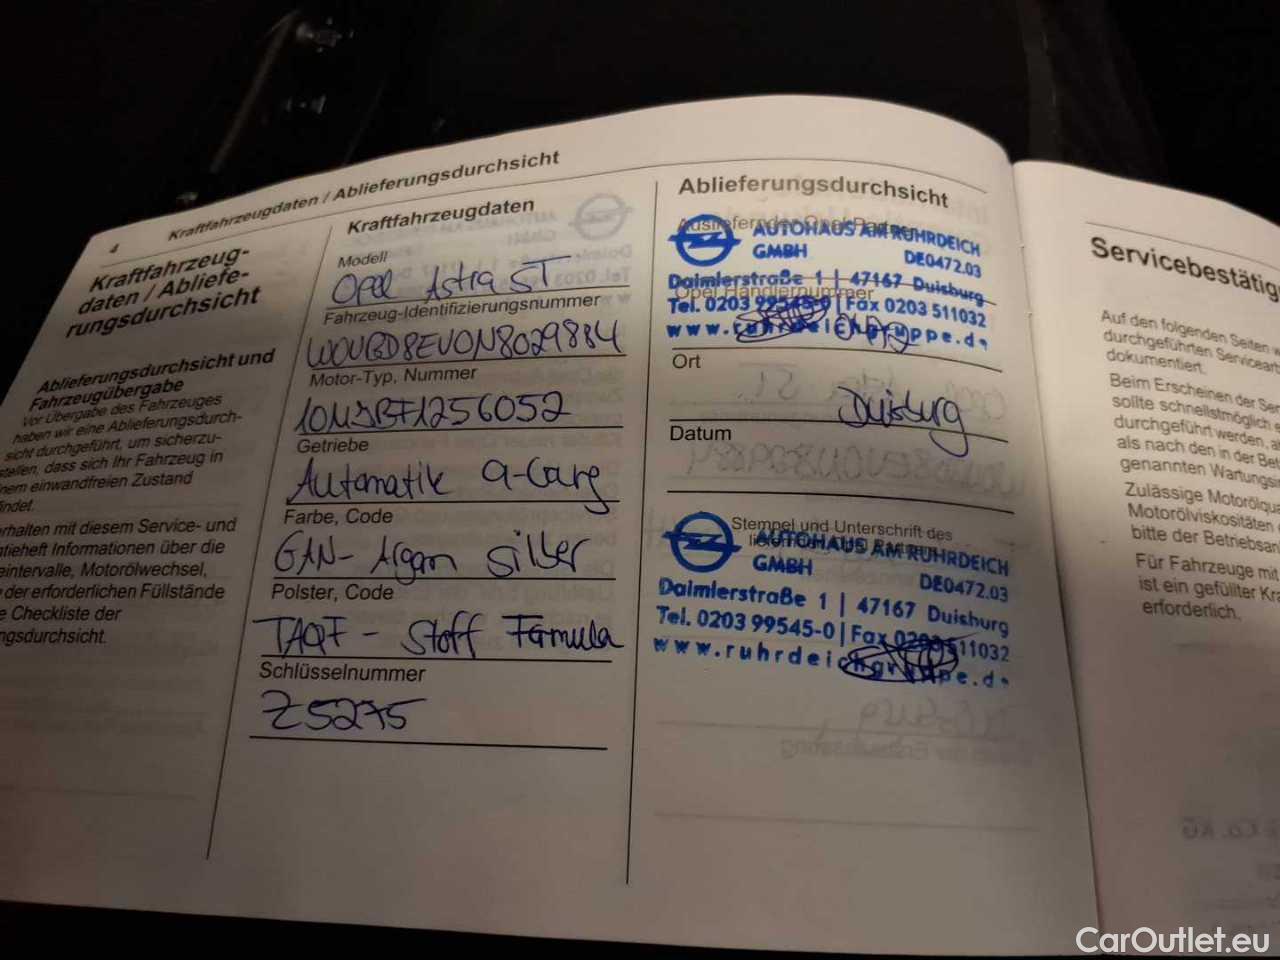 4
Kraftfahrzeugdaten / Ablieferungsdurchsicht
Kraftfahrzeug-
daten / Abliefe-
rungsdurchsicht
Ablieferungsdurchsicht und
Fahrzeugübergabe
Vor Übergabe des Fahrzeuges
haben wir eine Ablieferungsdurch-
sicht durchgeführt, um sicherzu-
stellen, dass sich Ihr Fahrzeug in
einem einwandfreien Zustand
findet.
erhalten mit diesem Service- und
Informationen über die
Motorölwechsel,
der erforderlichen Füllstände
e Checkliste der
ngsdurchsicht.
Kraftfahrzeugdaten
Modell
Opel Astra ST
Fahrzeug-Identifizierungsnummer
W0VBD8EV0N8029884
Motor-Typ, Nummer
Getriebe
Automatik 9-Gang
Farbe, Code
GAN- Argon Silber
Polster, Code
TAQF - Stoff Formula
Schlüsselnummer
Z5275
Ablieferungsdurchsicht
Ausliefernder Opel Partner
AUTOHAUS AM RUHRDEICH
GMBH DE0472.03
Daimlerstraße 1 | 47167 Duisburg
Opel Händlernummer
Tel. 0203 99545-0 | Fax 0203 511032
www.ruhrdeichgruppe.de
Ort
Duisburg
Datum
Stempel und Unterschrift des
AUTOHAUS AM RUHRDEICH
GMBH DE0472.03
Daimlerstraße 1 | 47167 Duisburg
Tel. 0203 99545-0 | Fax 0203 511032
www.ruhrdeichgruppe.de
Servicebestätigu
Auf den folgenden Seiten w
durchgeführten Servicearb
dokumentiert.
Beim Erscheinen der Ser
sollte schnellstmöglich e
durchgeführt werden, a
als nach den in der Bet
genannten Wartungsin
Zulässige Motorölqua
Motorölviskositäten
bitte der Betriebsan
Für Fahrzeuge mit
ist ein gefüllter Kra
erforderlich.
CarOutlet.eu